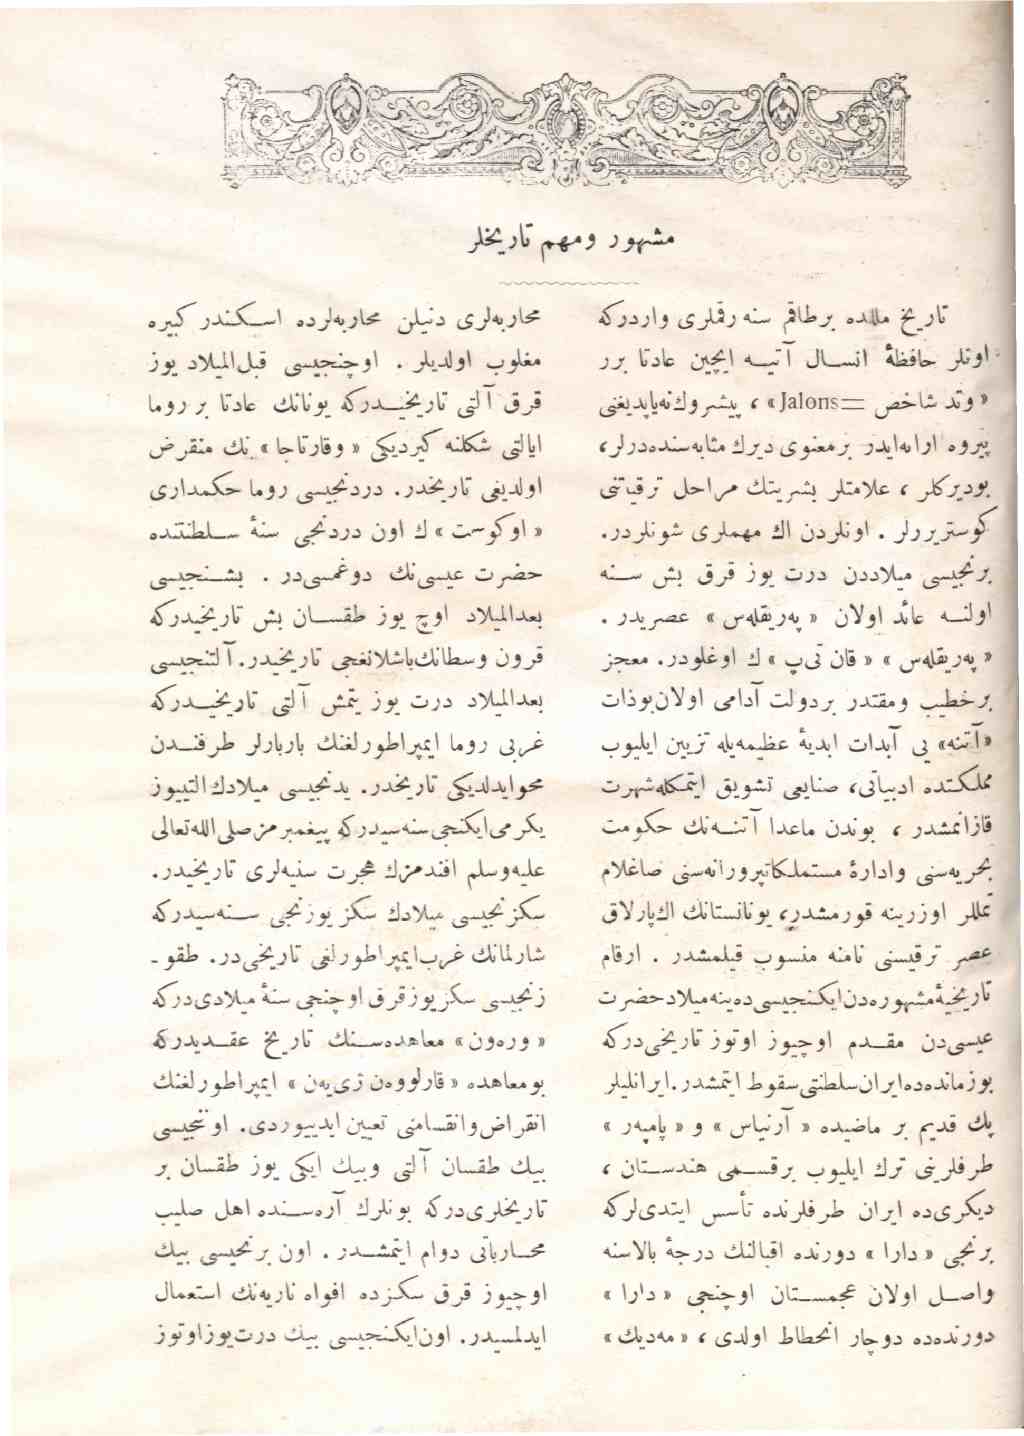 مشهور ومهم تاريخلر
تاريخ مللده برطاقم سنه رقملری واردركه
اونلر حافظهٔ انسال آتيه ايچين عادتا برر
« وتد شاخص =Jalons» ، پيشروك‌نه‌ياپديغنی
پيروه ارائه‌ايدر برمعنوی ديرك مثابه‌سنده‌درلر،
بوديركلر ، علامتلر بشريتك مراحل ترقياتنی
كوستريرلر . اونلردن اك مهملری شونلردر.
برنجيسی ميلاددن درت يوز قرق بش سنه
اولنه عائد اولان « په‌ريقله‌س » عصريدر .
« په‌ريقله‌س » « قان تی‌پ » ك اوغلودر. معجز
برخطيب ومقتدر بردولت آدامی اولان‌بوذات
«آتنه» يی آبدات ابديهٔ عظيمه‌يله تزيين ايليوب
مملكتده ادبياتی، صنايعی تشويق ايتمكله‌شهرت
قازانمشدر ، بوندن ماعدا آتنه‌نك حكومت
بحريه‌سنی وادارهٔ مستملكاتپرورانه‌سنی صاغلام
تمللر اوزرينه قورمشدر، يونانستانك اك‌پارلاق
عصر ترقيسنی نامنه منسوب قيلمشدر . ارقام
تاريخيهٔ‌مشهوره‌دن‌ايكنجيسی‌ده‌ينه‌ميلادحضرت
عيسی‌دن مقدم اوچيوز اوتوز تاريخی‌دركه
بوزمانده‌ده‌ايران‌سلطنتی‌سقوط ايتمشدر.ايرانليلر
پك قديم بر ماضيده « آرنياس » و « پامپه‌ر »
طرفلرينی ترك ايليوب برقسمی هندستان ،
ديكری‌ده ايران طرفلرنده تأسس ايتدی‌لركه
برنجی « دارا » دورنده اقبالنك درجهٔ بالاسنه
واصل اولان عجمستان اوچنجی « دارا »
دورنده‌ده دوچار انحطاط اولدی ، « مه‌ديك »
محاربه‌لری دنيلن محاربه‌لرده اسكندر كبيره
مغلوب اولديلر . اوچنجيسی قبل‌الميلاد يوز
قرق آلتی تاريخيدركه يونانك عادتا بر روما
ايالتی شكلنه كيرديكی « وقارتاجا » نك منقرض
اولديغی تاريخدر. دردنجيسی روما حكمداری
« اوكوست » ك اون دردنجی سنهٔ سلطنتنده
حضرت عيسی‌نك دوغمسی‌در . بشنجيسی
بعدالميلاد اوچ يوز طقسان بش تاريخيدركه
قرون وسطانك‌باشلانغجی تاريخيدر. آلتنجيسی
بعدالميلاد درت يوز يتمش آلتی تاريخيدركه
غربی روما ايمپراطورلغنك باربارلر طرفندن
محوايدلديكی تاريخدر. يدنجيسی ميلادك التييوز
يكرمی‌ايكنجی‌سنه‌سيدركه پيغمبرمز صلی‌الله‌تعالی
عليه‌وسلم افندمزك هجرت سنيه‌لری تاريخيدر.
سكزنجيسی ميلادك سكز يوزنجی سنه‌سيدركه
شارلمانك غرب‌ايمپراطورلغی تاريخی‌در. طقو-
زنجيسی سكزيوزقرق اوچنجی سنهٔ ميلادی‌دركه
« وره‌ون » معاهده‌سنك تاريخ عقديدركه
بومعاهده « قارلووه‌ن ژی‌يه‌ن » ايمپراطورلغنك
انقراض‌وانقسامنی تعيين ايدييوردی. اوننجيسی
بيك طقسان آلتی وبيك ايكی يوز طقسان بر
تاريخلری‌دركه بونلرك آره‌سنده اهل صليب
محارباتی دوام ايتمشدر . اون برنجيسی بيك
اوچيوز قرق سكزده افواه ناريه‌نك استعمال
ايدلمسيدر. اون‌ايكنجيسی بيك درت‌يوزاوتوز